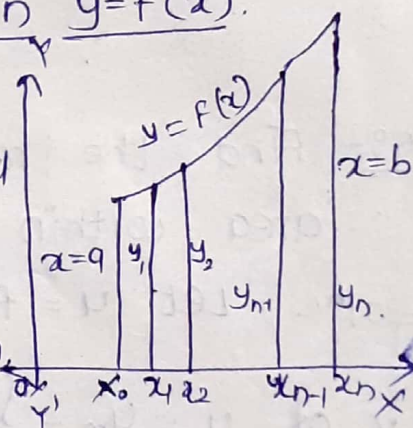 n y=f(x).
Y
y=f(x)
x=b
x=a y₁ y₂
yₙ₊₁ yₙ.
X₀ x₁ x₂ xₙ₋₁ xₙ X
Y'